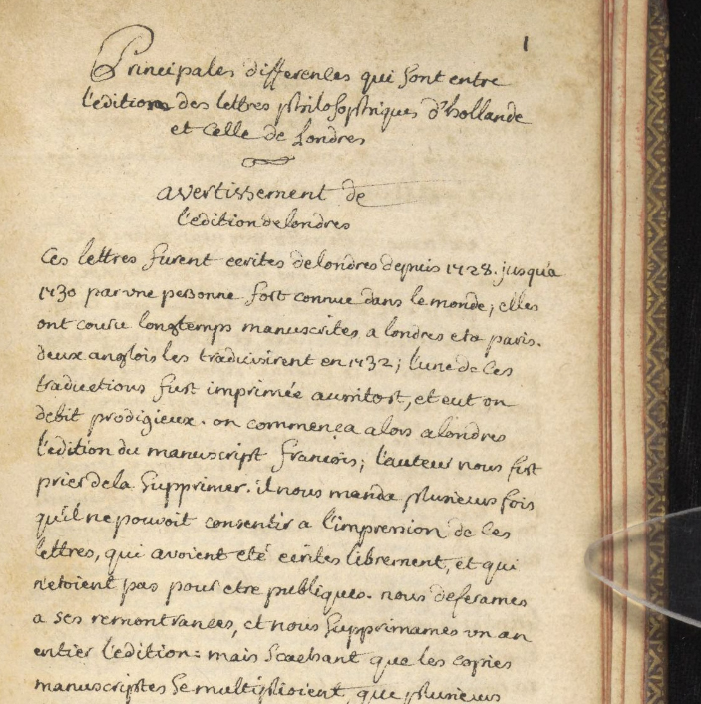 1
Principales differences qui sont entre
l'edition des lettres philosophiques d'hollande
et celle de Londres
avertissement de
l'edition de londres
Ces lettres furent ecrites de londres depuis 1728. jusqu'a
1730 par une personne fort connue dans le monde; elles
ont couru longtemps manuscrites a londres et a paris.
deux anglois les traduisirent en 1732; l'une de ces
traductions fust imprimée aussitost, et eut un
debit prodigieux. on commença alors a londres
l'edition du manuscript francois; l'auteur nous fist
prier de la supprimer. il nous manda plusieurs fois
qu'il ne pouvoit consentir a l'impression de ces
lettres, qui avoient eté ecrites librement, et qui
n'etoient pas pour etre publiques. nous deferames
a ses remontrances, et nous supprimames un an
entier l'edition: mais scachant que les copies
manuscriptes se multiplioient, que plusieurs